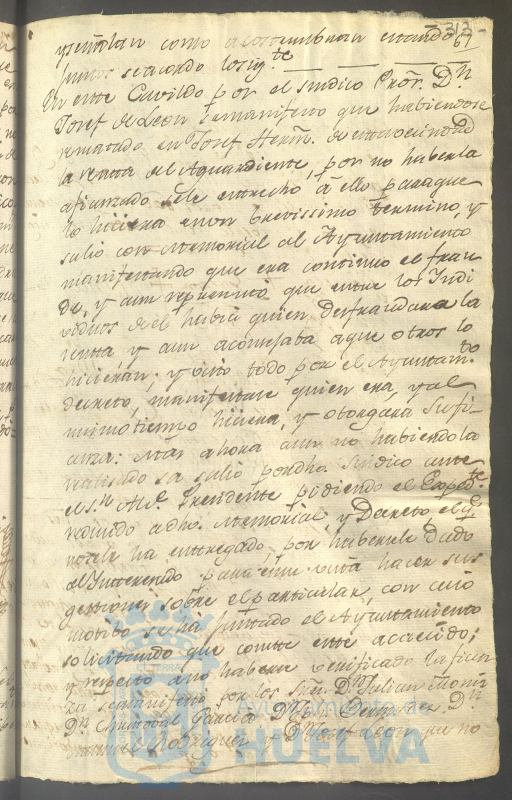 313
61
y señalan como acostumbran estando
juntos se acordo lo sig.te
En este Cavildo por el sindico Pror. Dn
Josef de Leon se manifesto que habiendose
rematado en Josef Hern. de esta vecindad
la renta del Aguardiente, por no haberla
afianzado se le estrecho, á ello para que
lo hiciera en un brevissimo termino, y
salio con Memorial al Ayuntamiento
manifestando que era continuo el frau
de, y aun represento que entre los Indi
viduos de el habia quien defraudara la
renta y aun aconsejaba a que otros lo
hicieran; y visto todo por el Ayuntam.to
decreto, manifestase quien era, y al
mismo tiempo hiciera, y otorgara Sufi-
anza: Mas ahora aun no habiendola
realisado sa salio por dho. Sindico ante
el s.r Al.e Presidente pidiendo el Exped.te
reducido a dho. Memorial, y Decreto el q.e
no se le ha entregado, por haberele dado
al Interesado para que vaya hacer sus
gestiones sobre el particular, con cuio
motibo se ha juntado el Ayuntamiento
solicitando que conste este acaecido;
y respecto a no haberse verificado la fian
za se manifesto por los Sres. Dn Julian
Dn Christobal Garcia Dn
Rodriguez y Dn Josef Leon que no
Ayuntamiento de
HUELVA